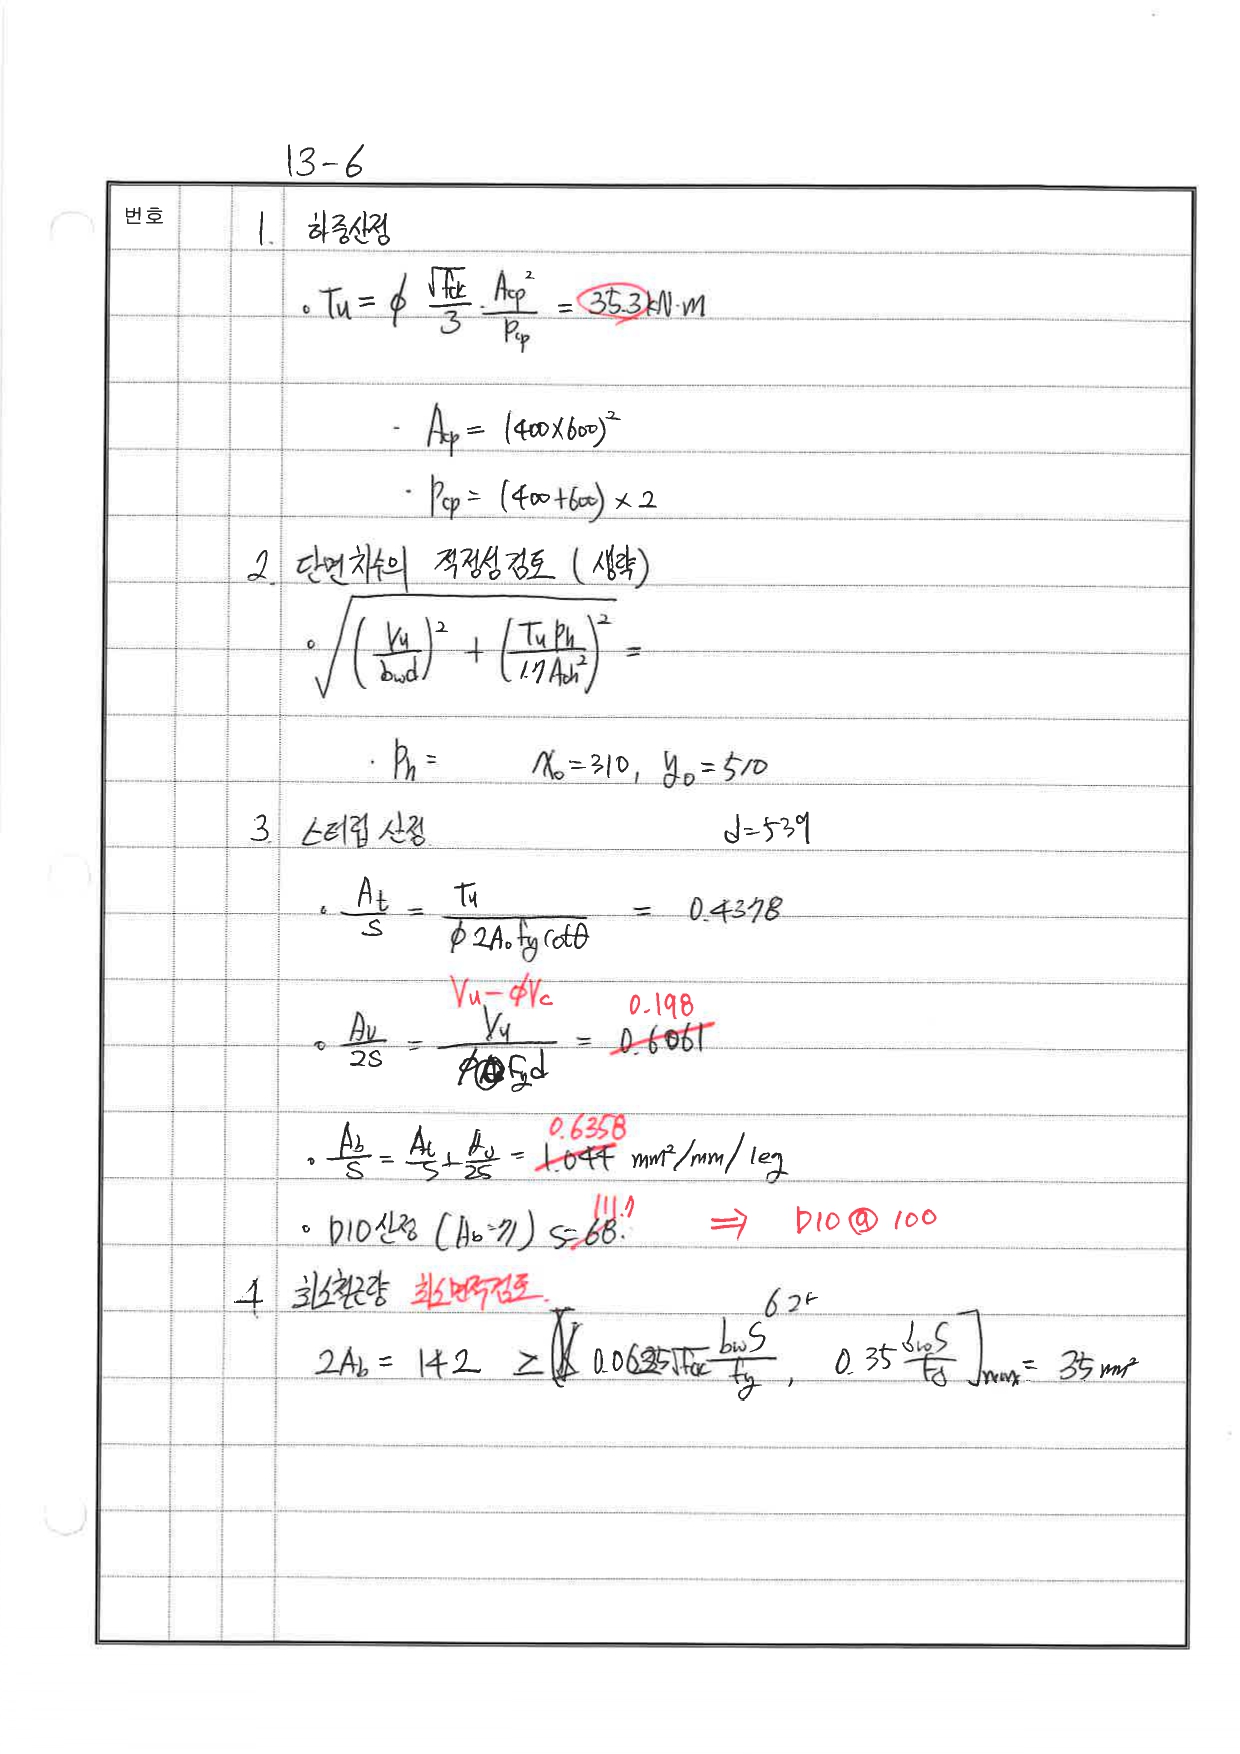 13-6
번호
1. 하중산정
Tu = φ √fck/3 · Acp²/Pcp = 35.3 kN·m
· Acp = (400×600)²
· Pcp = (400+600) × 2
2. 단면치수의 적정성검토 (생략)
√((Vu/bwd)² + (Tu Ph/1.7Aoh²)²) =
· Ph = x₀=310, y₀=510
3. 스터럽 산정 d=539
At/S = Tu/φ2A₀fycotθ = 0.4378
Vu-φVc 0.198
Av/2S = Vu/φ fyd = 0.6061
0.6358
Ab/S = At/S + Av/2S = 1.044 mm²/mm/leg
111.7
D10산정 (Ab=71) S=68. ⇒ D10 @ 100
4 최소철근량 최소면적검토.
2Ab = 142 ≥ [0.0625√fck bwS/fy, 0.35 bwS/fy]max = 35mm²